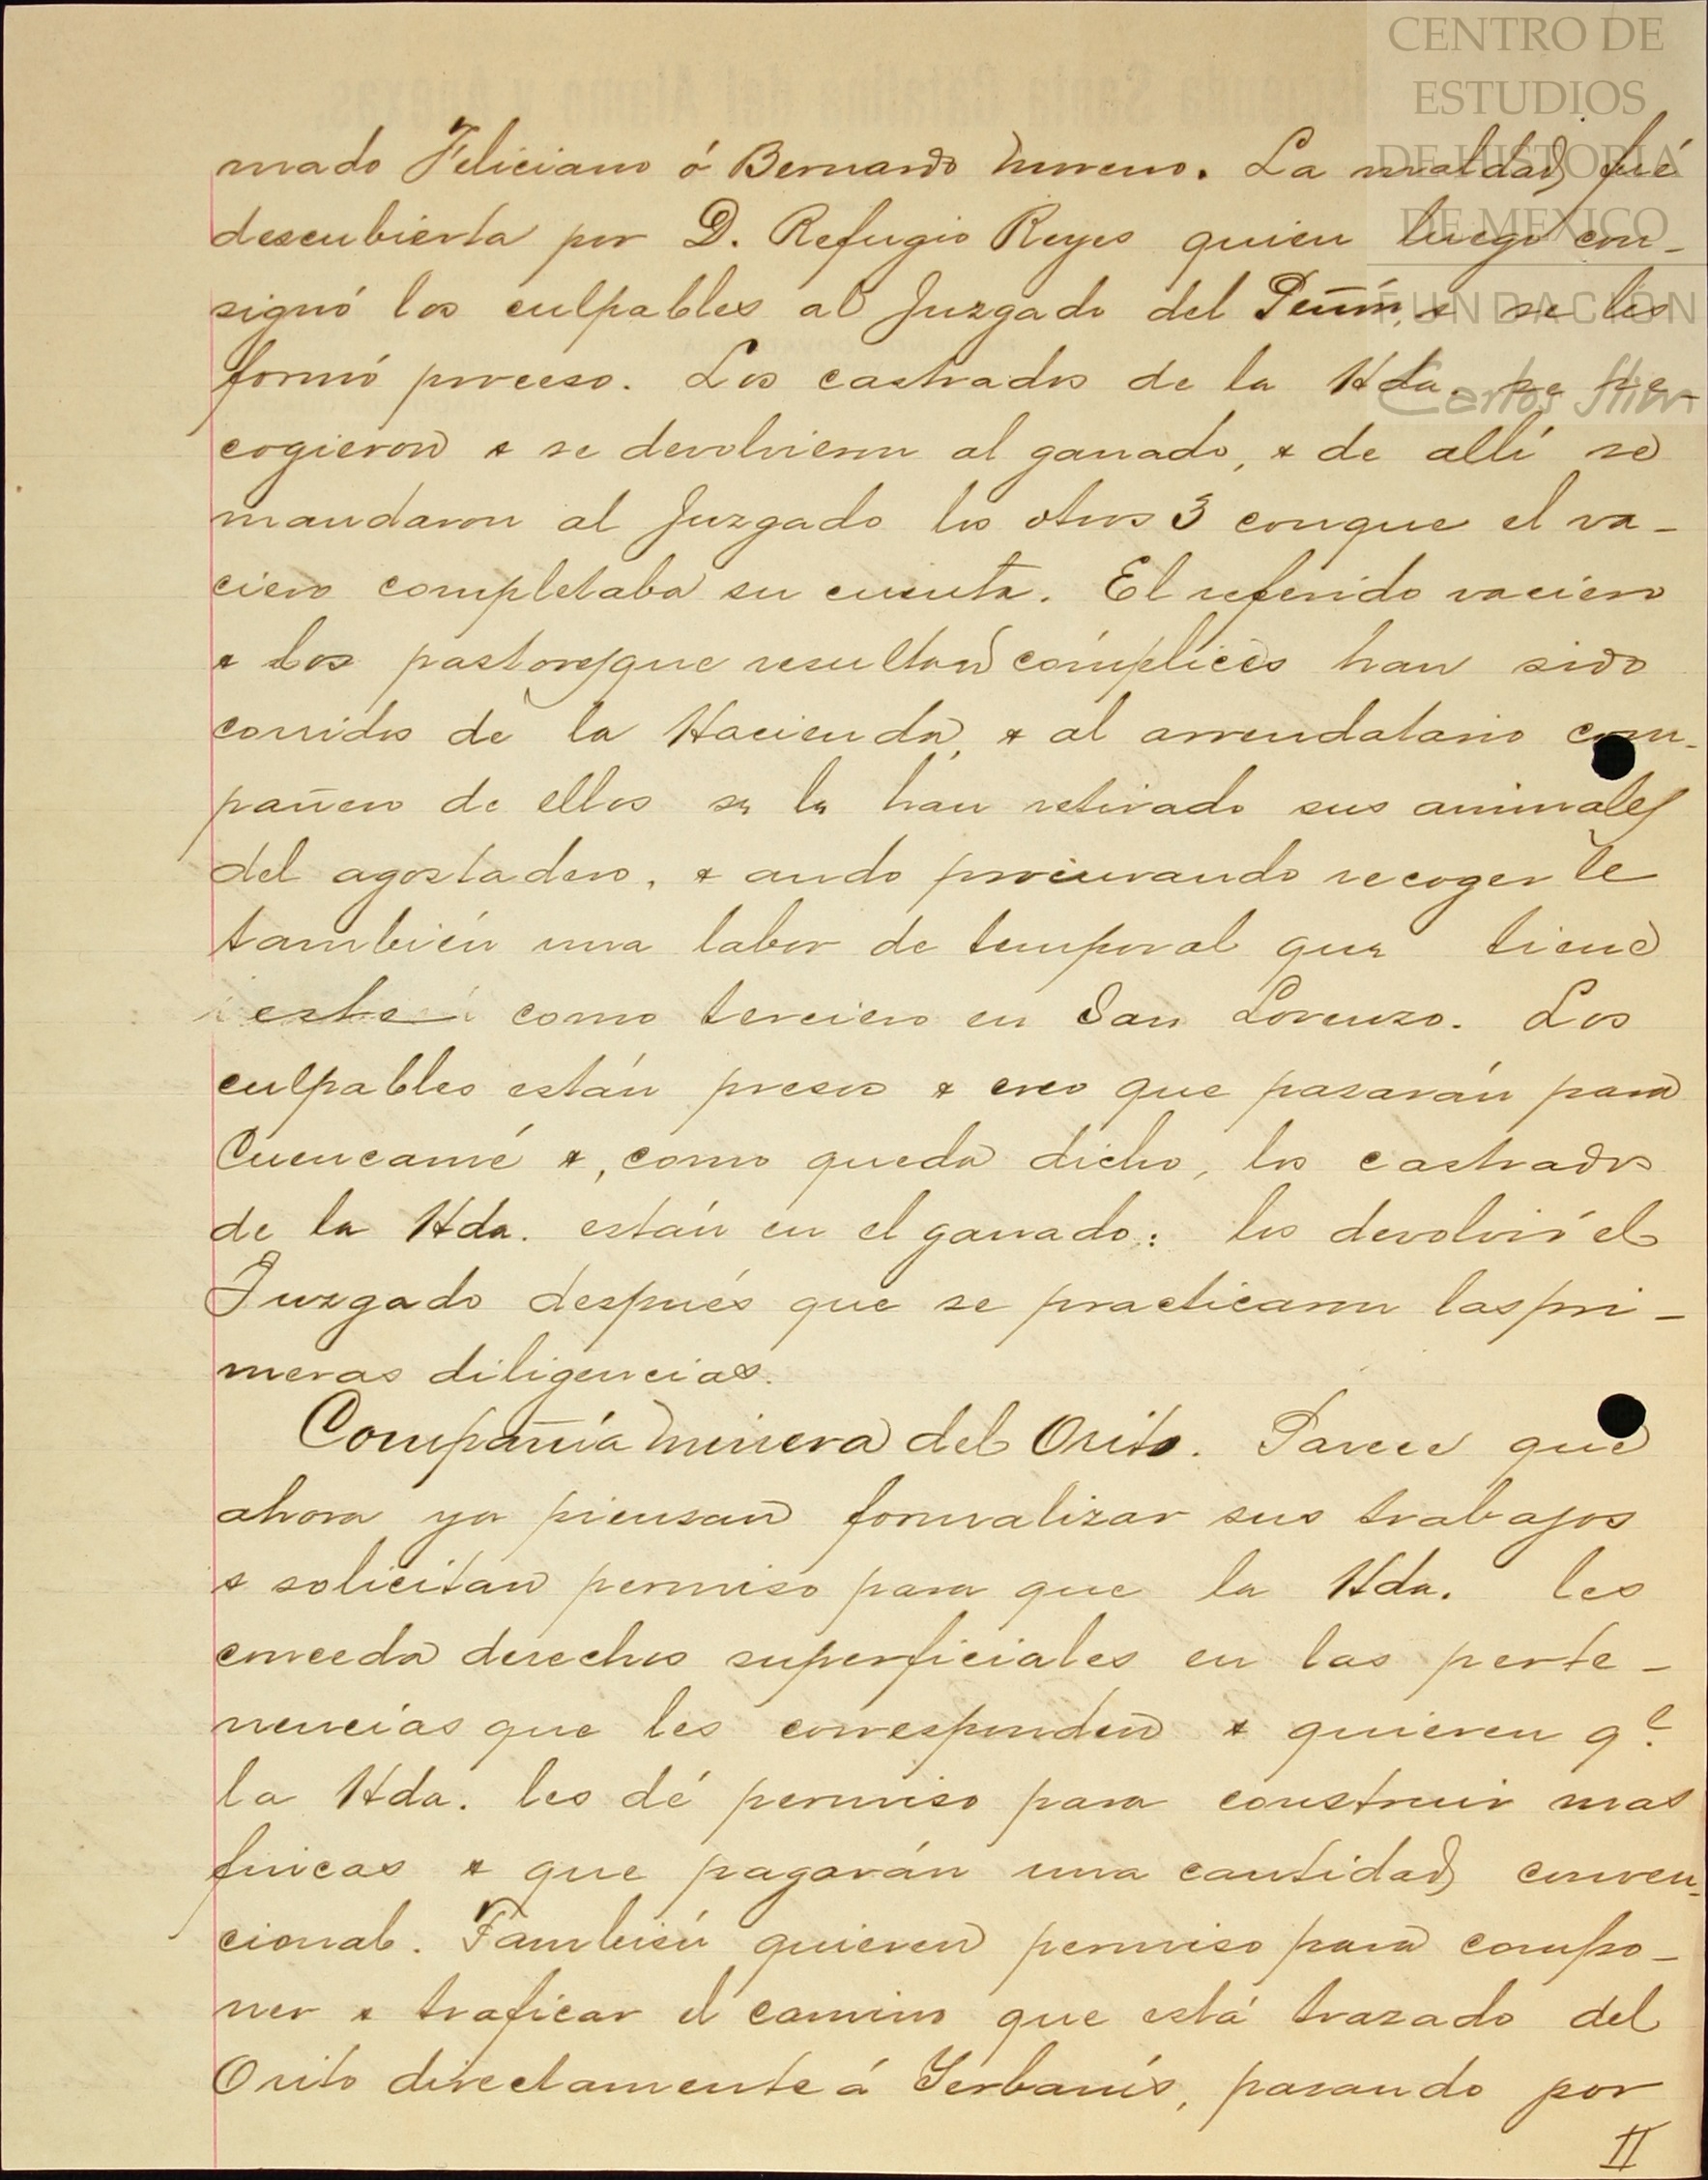 CENTRO DE
ESTUDIOS
DE HISTORIA
DE MEXICO
FUNDACION
Carlos Slim
mado Feliciano ó Bernardo Moreno. La maldad fué
descubierta por D. Refugio Reyes quien luego con-
signó los culpables al Juzgado del Peñón, & se les
formó proceso. Los castrados de la Hda. se re-
cogieron & se devolvieron al ganado, & de allí se
mandaron al Juzgado los otros 3 conque el va-
ciero completaba su cuenta. El referido vaciero
& los pastores que resultan cómplices han sido
corridos de la Hacienda, & al arrendatario com-
pañero de ellos se le han retirado sus animales
del agostadero, & ando procurando recogerle
también una labor de temporal que tiene
este como terciero en San Lorenzo. Los
culpables están presos & creo que pasarán para
Cuencamé &, como queda dicho, los castrados
de la Hda. están en el ganado: los devolvió el
Juzgado después que se practicaron las pri-
meras diligencias.
Compañía Minera del Orito. Parece que
ahora ya piensan formalizar sus trabajos
& solicitan permiso para que la Hda. les
conceda derechos superficiales en las perte-
nencias que les corresponden & quieren qe.
la Hda. les dé permiso para construir mas
fincas & que pagarán una cantidad conven-
cional. También quieren permiso para compo-
ner & traficar el camino que está trazado del
Orito directamente á Yerbanís, pasando por
II